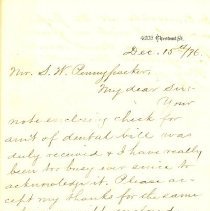 4233 Chestnut St.
Dec. 15th/96.
Mr. S. W. Pennypacker,
My dear Sir:-
Your
note enclosing check for
am't of dental bill was
duly received & I have really
been too busy ever since to
acknowledge it. Please ac-
cept my thanks for the same